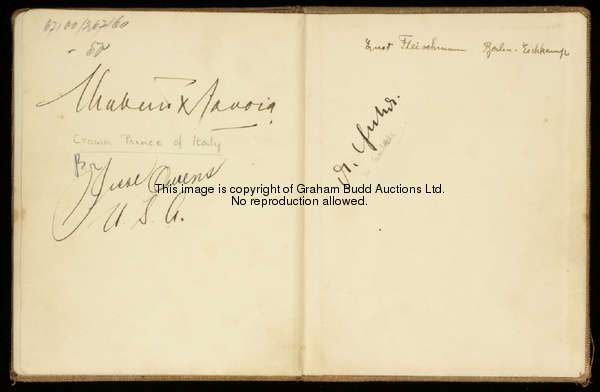 - 50
Umberto di Savoia
Crown Prince of Italy
Jesse Owens
U. S. A.
Ernst Fleischmann Berlin-Eichkamp
This image is copyright of Graham Budd Auctions Ltd.
No reproduction allowed.